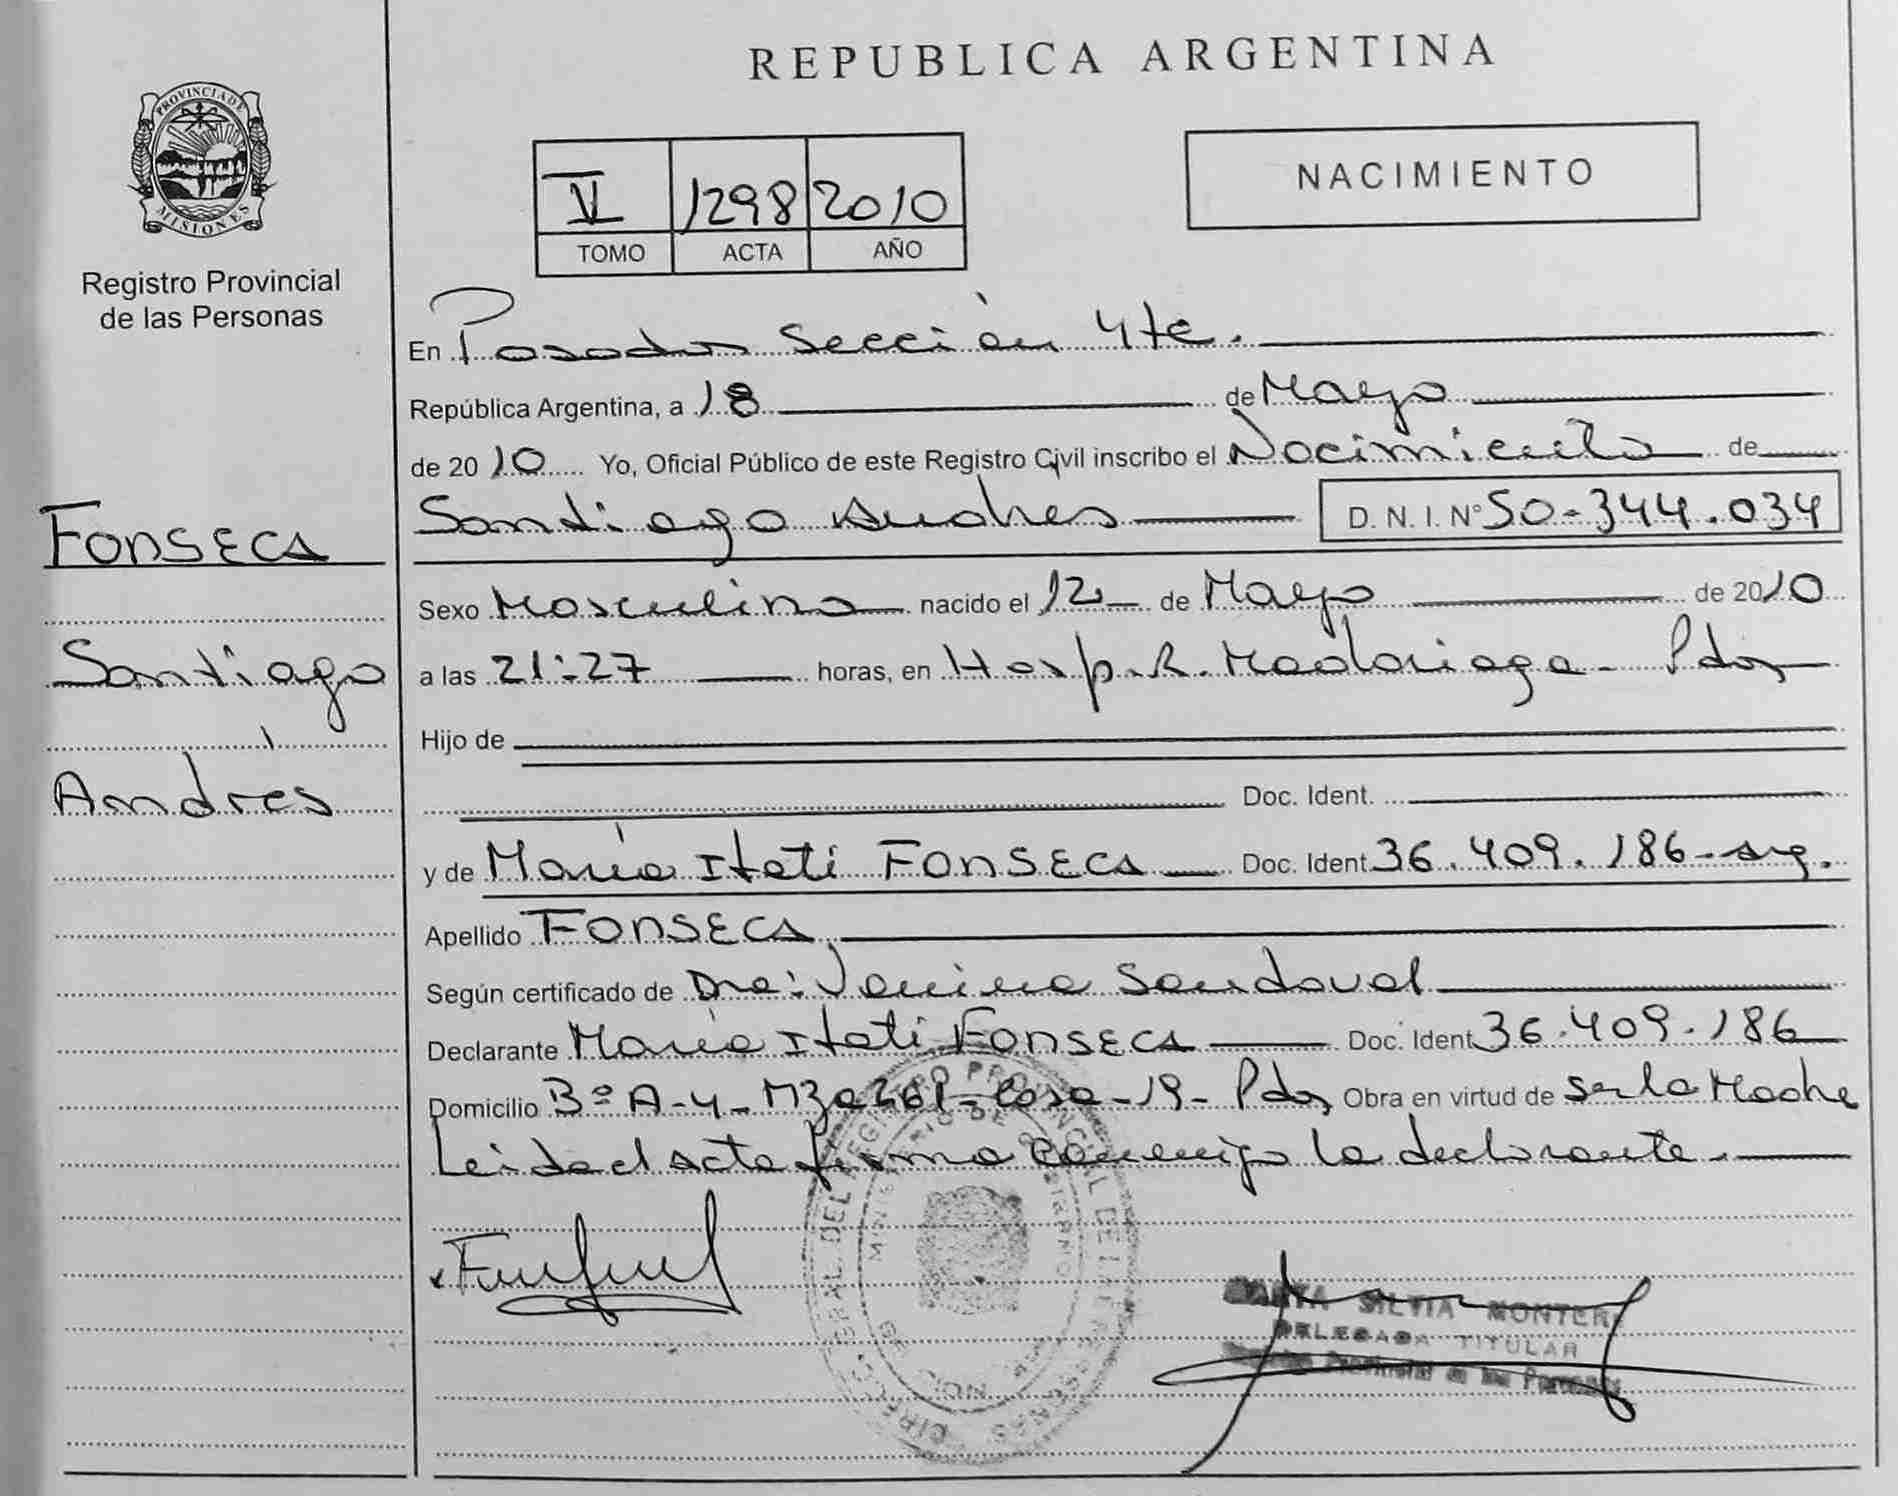 REPUBLICA ARGENTINA
PROVINCIA DE
MISIONES
Registro Provincial
de las Personas
V 1298 2010
TOMO ACTA AÑO
NACIMIENTO
En Posadas Sección 4ta.
República Argentina, a 18 de Mayo
de 2010 Yo, Oficial Público de este Registro Civil inscribo el Nacimiento de
Santiago Andres D. N. I. Nº 50-344.034
Sexo Masculino nacido el 12 de Mayo de 2010
a las 21:27 horas, en Hosp. R. Madariaga - Pdas
Hijo de
Doc. Ident.
y de María Itati FONSECA Doc. Ident 36.409.186-arg.
Apellido FONSECA
Según certificado de Dra: Yanina Sandoval
Declarante María Itati FONSECA Doc. Ident 36.409.186
Domicilio Bº A-4- Mza Casa-19- Pdas Obra en virtud de ser la Madre
Leida el acta firma conmigo la declarante.
FONSECA
Santiago
Andrés
SILVIA MONTERO
DELEGADA TITULAR
Provincial de las Personas